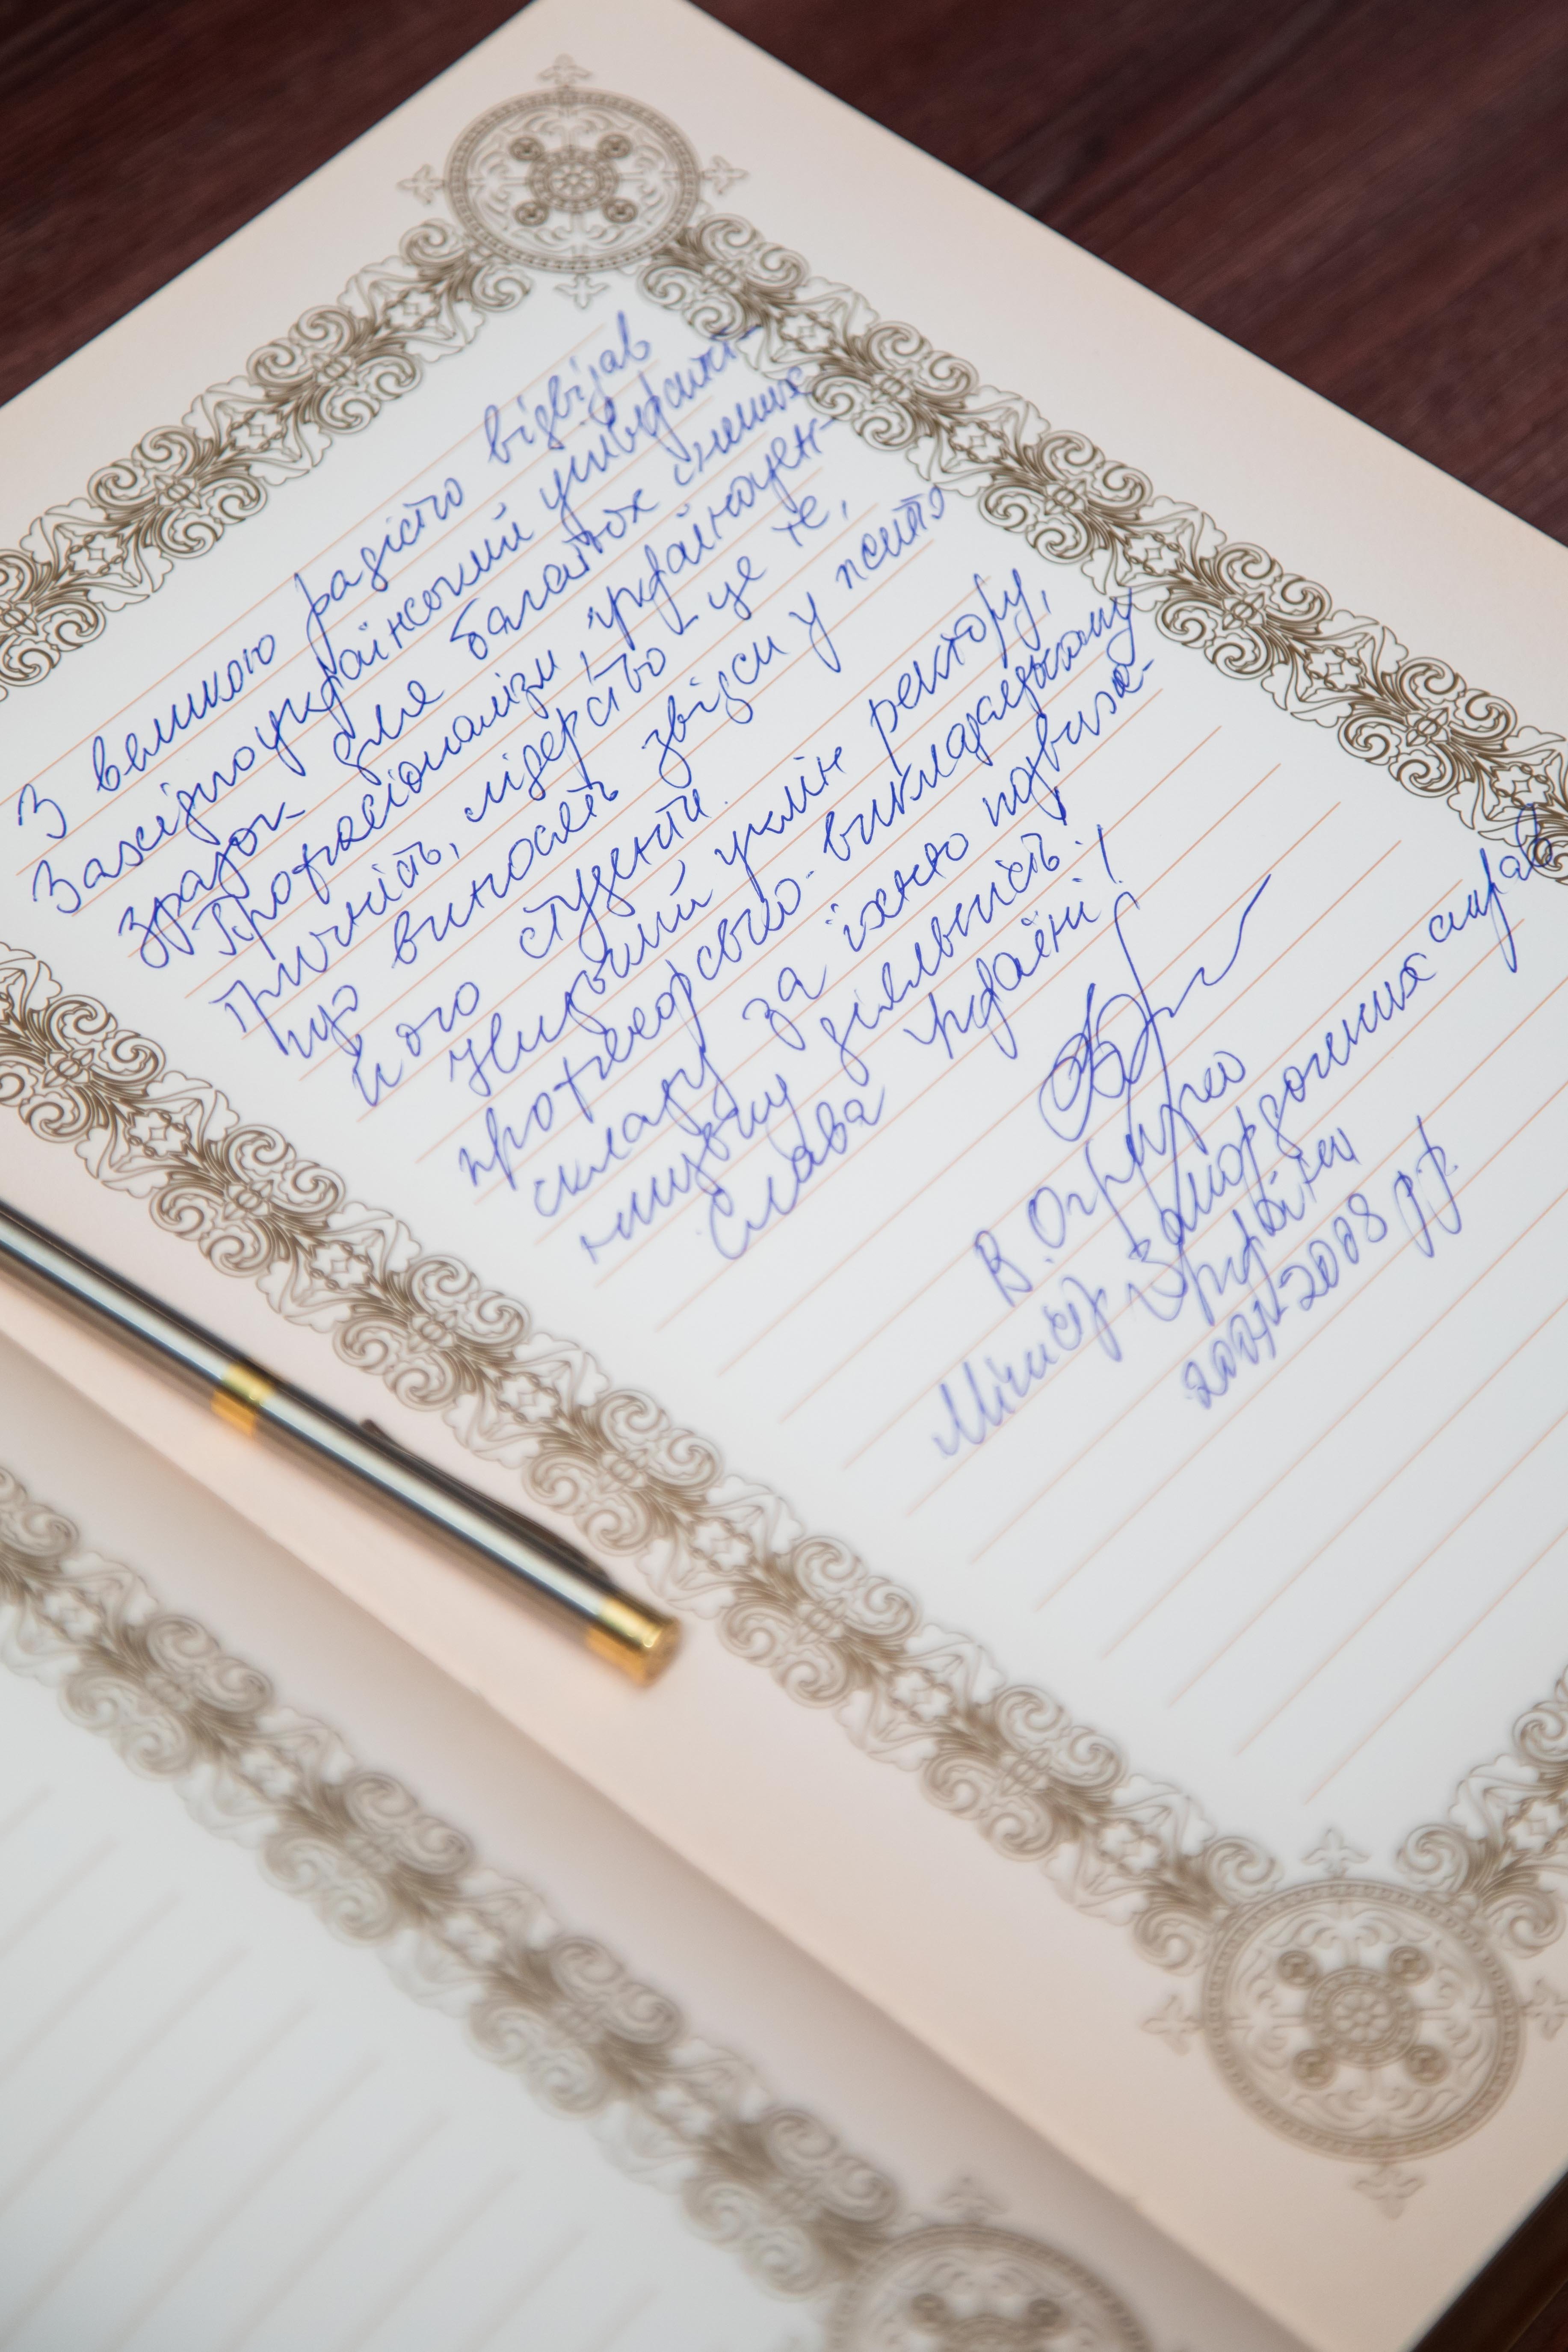 З великою радістю відвідав
Західноукраїнський університет –
зразок для багатьох інших.
Професіоналізм, україноцен-
тричність, лідерство – це те,
що виносять звідси у життя
його студенти.
Низький уклін ректору,
професорсько-викладацькому
складу за їхню подвиж-
ницьку діяльність!
Слава Україні!
В. Огризко
Міністр закордонних справ
України
2007-2008 рр.